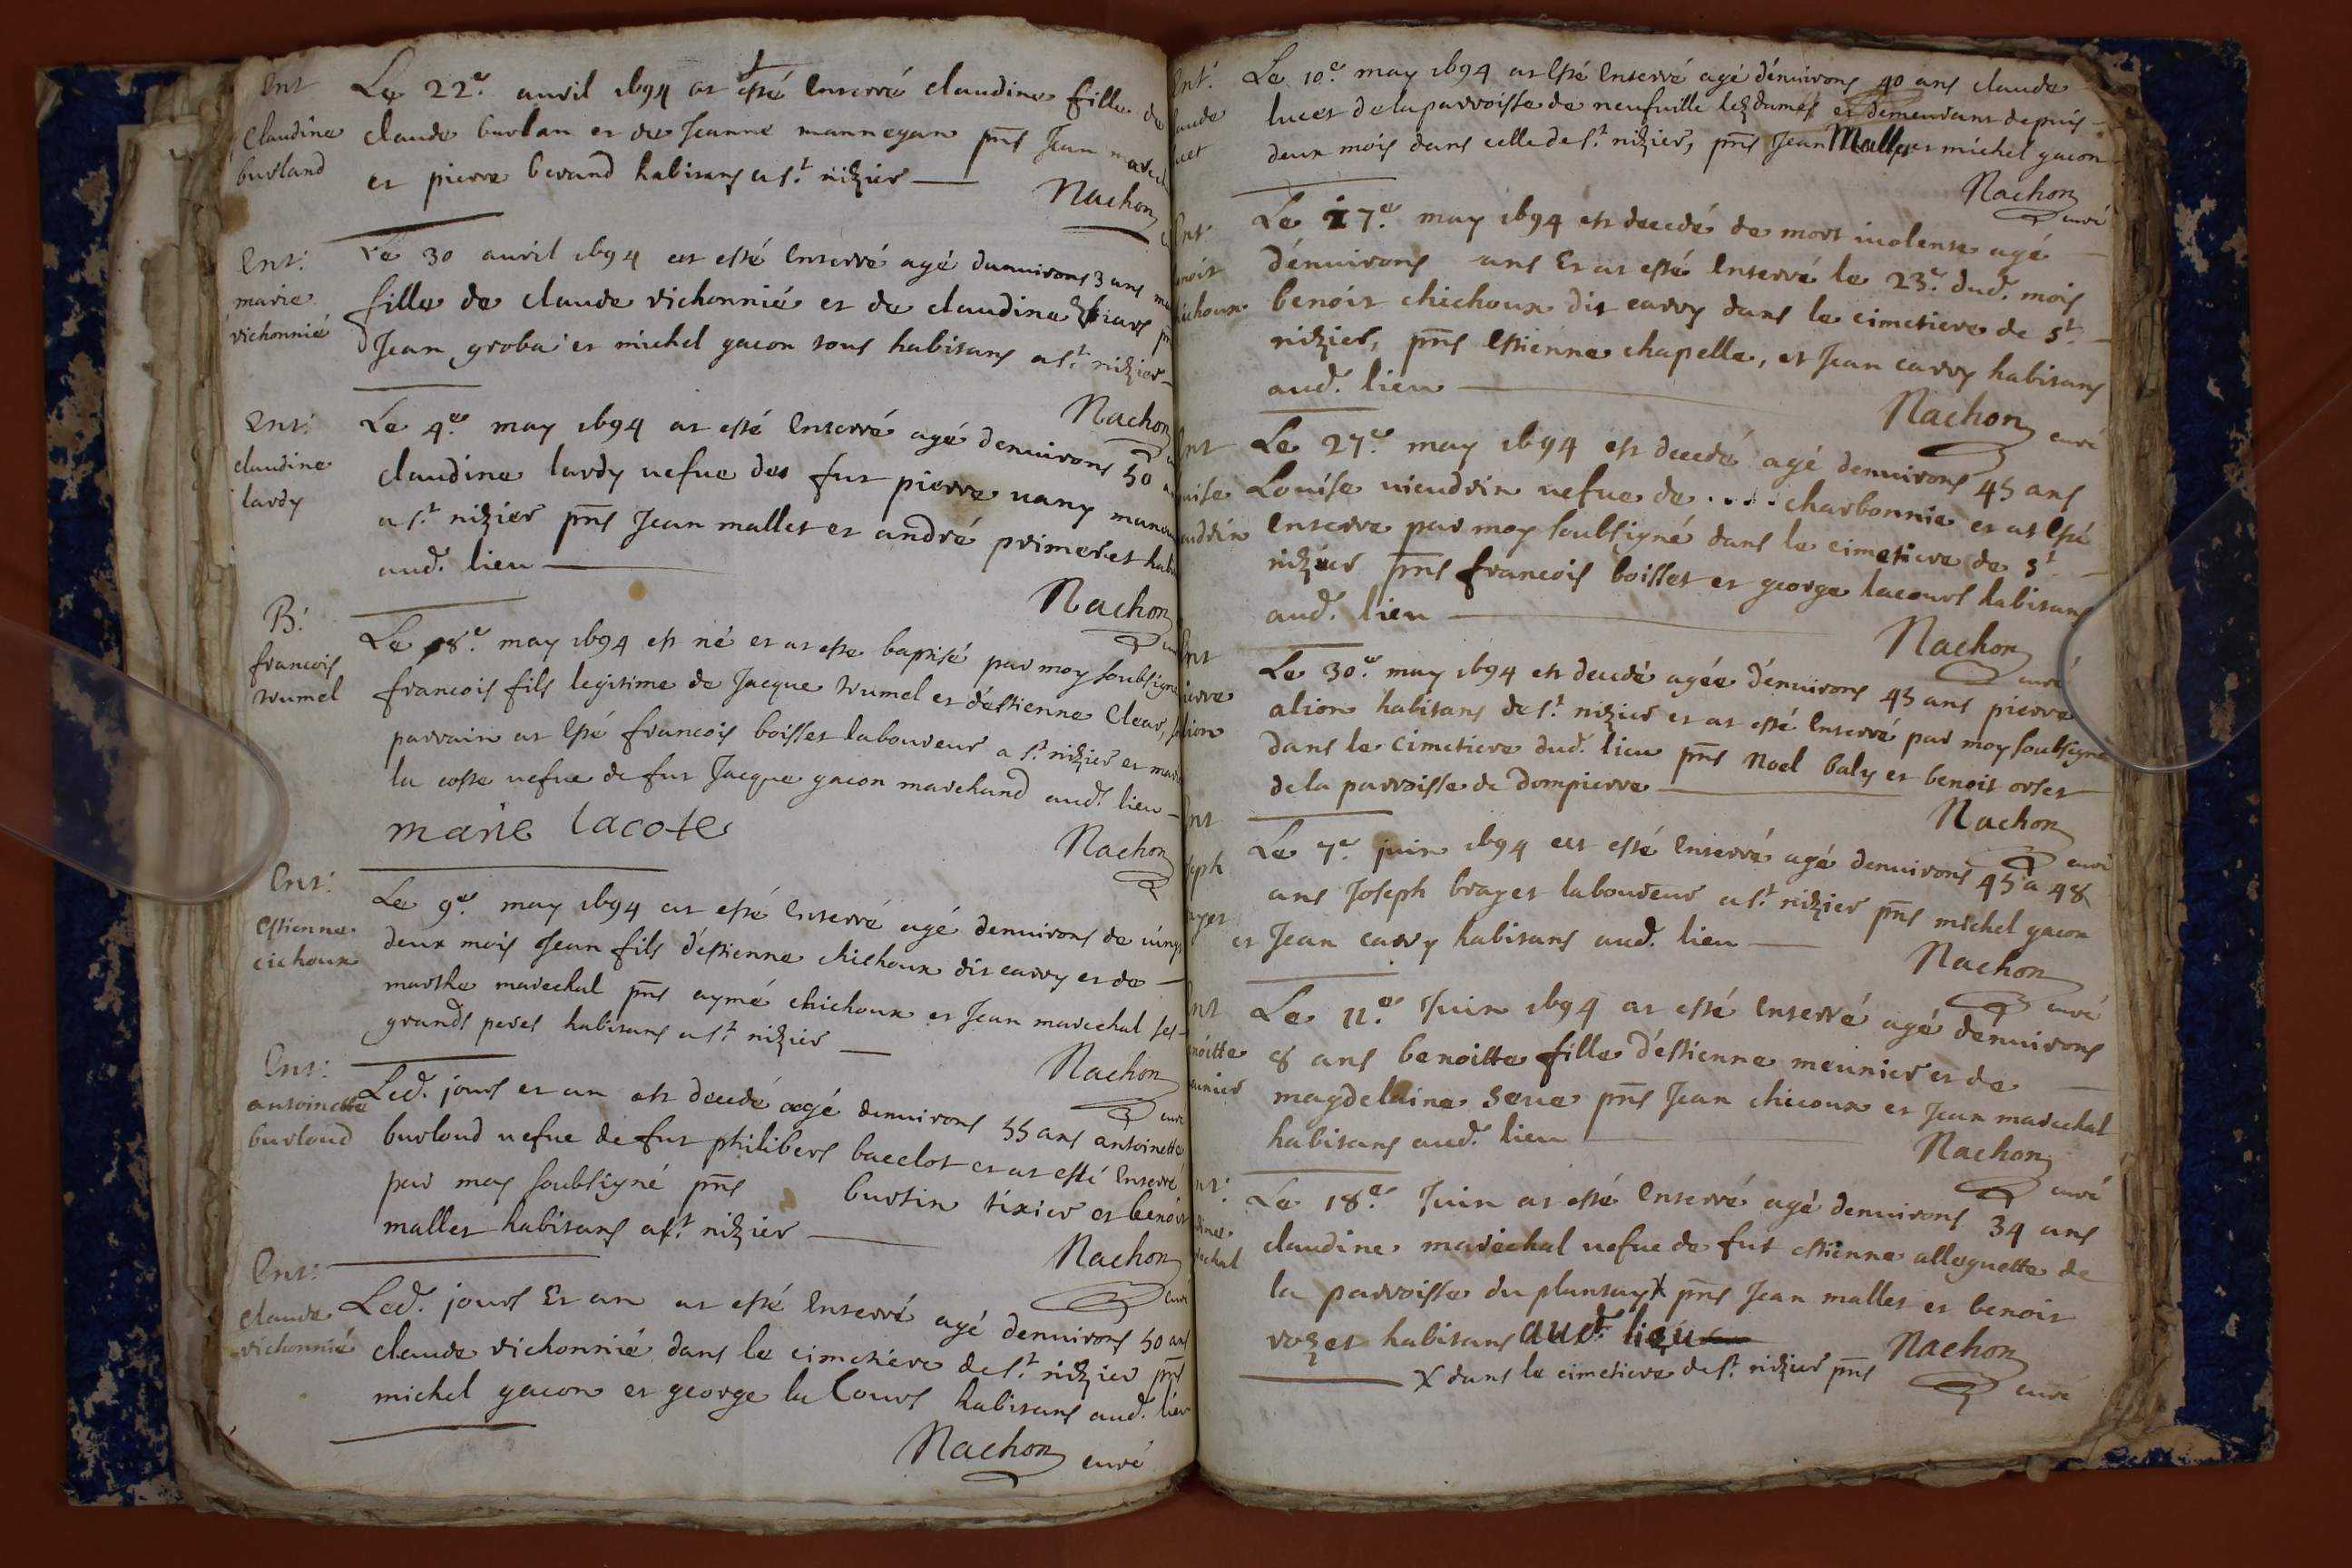 Ent
Claudine
burland
Le 22.e auril 1694 at esté enterré claudine fille de
claude burlan et de Jeanne mannegan pñs Jean marech
et pierre berand habitans a s.t nizier
Nachon
Ent:
marie
vichonnié
Le 30 auril 1694 at esté enterré agé danuirons 3 ans
fille de claude vichonnié et de claudine
Jean groba et michel gacon tous habitans a s.t nizier
Nachon
Ent:
claudine
lardy
Le 4.e may 1694 at esté enterré agé denuirons 50
claudine lardy uefue de fut pierre uany
a s.t nizier pñs Jean mallet et andré primeret
aud. lieu
Nachon
B:
francois
trumel
Le 8.e may 1694 est né et at esté baptisé par moy soubsigné
francois fils legitime de Jacque trumel et d'estienne clear,
parrain at esté francois boisset laboureur a s.t nizier et marie
la coste uefue de fut Jacque gacon marchand aud. lieu
marie lacote
Nachon
Ent:
Estienne
cichoux
Le 9.e may 1694 at esté enterré agé denuirons de uingt
deux mois Jean fils d'estienne chichoux dit carry et de
marthe marechal pñs aymé chichoux et Jean marechal ses
grands peres habitans a s.t nizier
Nachon curé
Ent:
antoinette
burloud
Led. jour et an est decedé agé denuirons 55 ans antoinette
burloud uefue de fut philibert bacelot et at esté enterré
par moy soubsigné pñs burtin tixier et benoit
mallet habitans a s.t nizier
Nachon curé
Ent:
claude
vichonnié
Led. jour Et an at esté enterré agé denuirons 50 ans
claude vichonnié dans le cimetiere de s.t nizier pñs
michel gacon et george la Cour habitans aud. lieu
Nachon curé
Ent:
Le 10.e may 1694 at esté enterré agé dénuirons 40 ans claude
lucet de la parroisse de neufuille lez dames et demeurant depuis
deux mois dans celle de s.t nizier, pñs Jean Mallet et michel gacon
Nachon curé
Ent:
Le 17.e may 1694 est decedé de mort uiolente agé
dénuirons ans Et at esté enterré le 23.e dud. mois
benoit chichoux dit carry dans le cimetiere de s.t
nizier, pñs Estienne chapelle, et Jean carry habitans
aud. lieu
Nachon curé
Ent
Le 27.e may 1694 est decedé agé denuirons 45 ans
Louise uieudrin uefue de .... charbonnie et at esté
enterré par moy soubsigné dans le cimetiere de s.t
nizier pñs francois boisset et george lacour habitans
aud. lieu
Nachon curé
Ent
Le 30.e may 1694 est decedé agée dénuirons 45 ans pierre
alion habitans de s.t nizier et at esté enterré par moy soubsigné
dans le cimetiere dud. lieu pñs Noel baly et benoit orset
de la parroisse de Dompierre
Nachon curé
Ent
Le 7.e juin 1694 at esté enterré agé denuirons 45 a 48
ans Joseph brayet laboureur a s.t nizier pñs michel gacon
et Jean carry habitans aud. lieu
Nachon curé
Ent
Le 11.e Juin 1694 at esté enterré agé dénuirons
8 ans benoitte fille d'estienne meunier et de
magdelaine seue pñs Jean chicoux et Jean marechal
habitans aud. lieu
Nachon curé
Le 18.e Juin at esté enterré agé denuirons 34 ans
claudine marechal uefue de fut estienne alloguette de
la parroisse du plantay X pñs Jean mallet et benoit
rozet habitans aud. lieu
Nachon curé
X dans le cimetiere de s.t nizier pñs